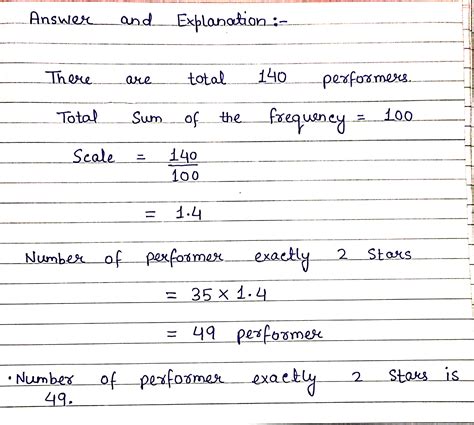 Answer and Explanation :-
There are total 140 performers.
Total Sum of the frequency = 100
Scale = 140
100
= 1.4
Number of performer exactly 2 Stars
= 35 × 1.4
= 49 performer
• Number of performer exactly 2 Stars is
49.